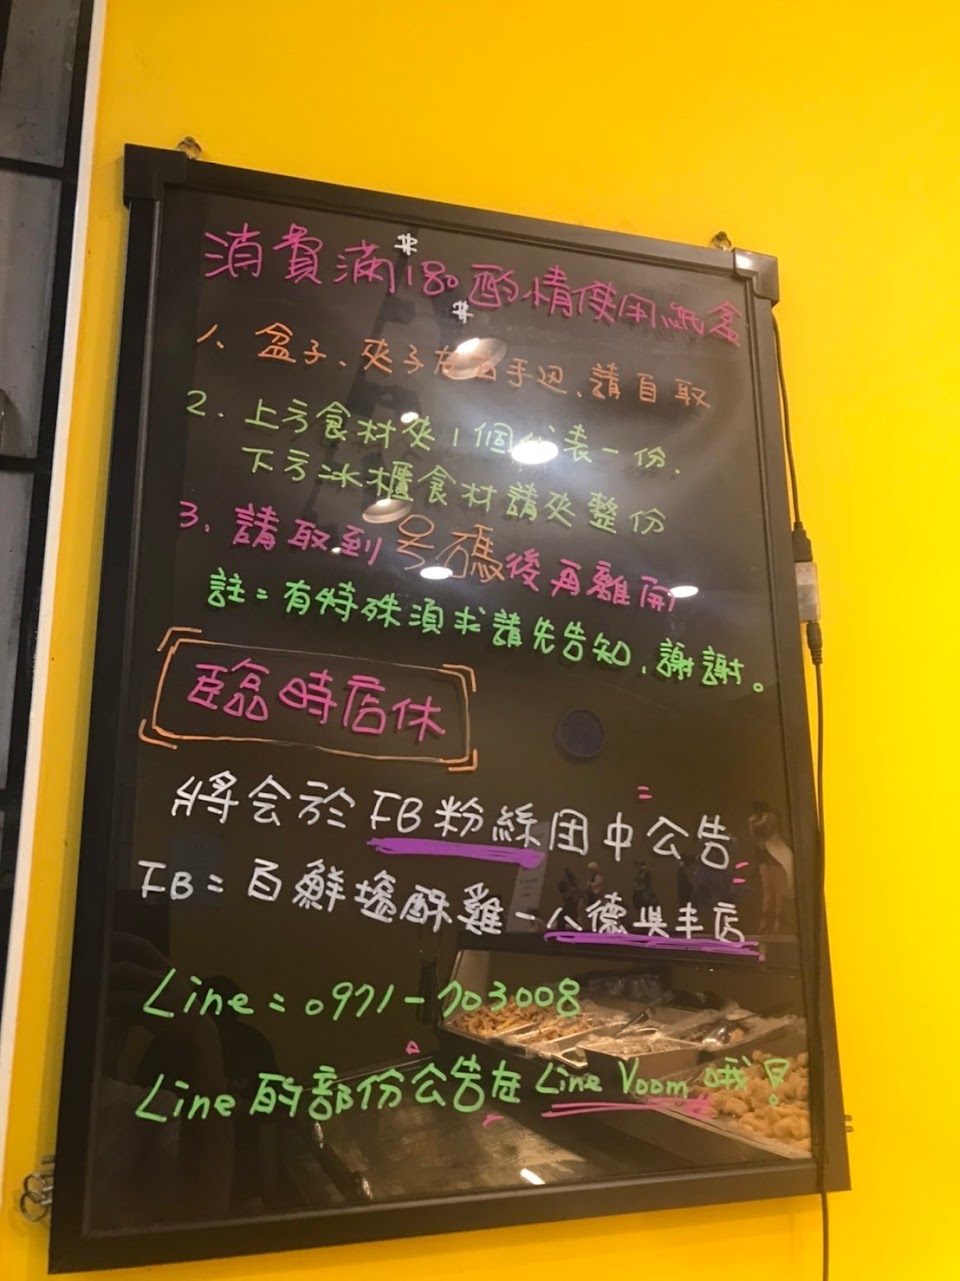 消費滿180酌情使用紙盒
1、盆子、夾子在右手边、請自取
2. 上方食材夾1個代表一份,
下方冰櫃食材請夾整份
3. 請取到号碼後再離開
註=有特殊須求請先告知、謝謝。
臨時店休
將会於FB粉絲团中公告
FB=百鮮塩酥雞-八德吳丰店
Line=0971-703008
Line的部份公告在Line Voom哦!